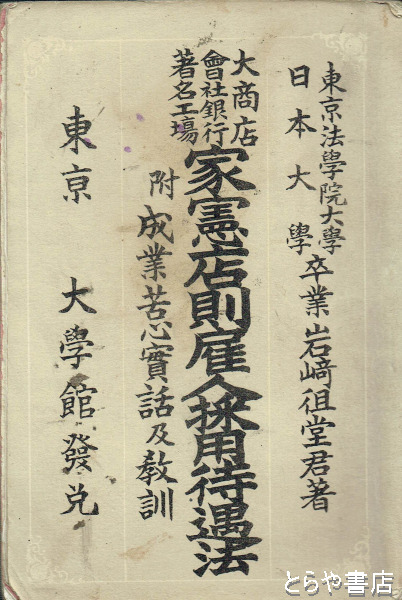 東京法學院大學
日本大學
卒業岩﨑徂堂君著
大商店
會社銀行
著名工場
家憲店則雇人採用待遇法
附
成業苦心實話及教訓
東京 大學館發兌
とらや書店